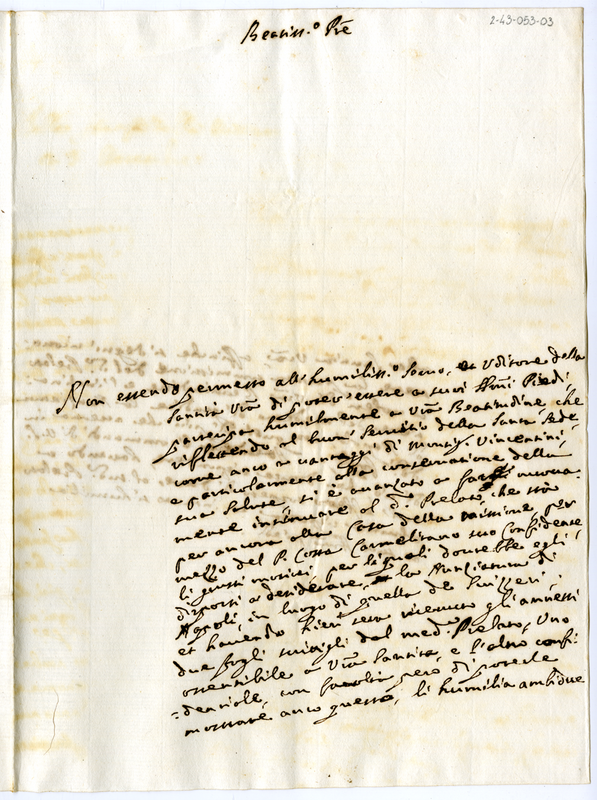 2-43-053-03
Beatiss.o Pre
Non essendo permesso all'humiliss.o Servo, et Uditore della
Santità Vra di poter essere a suoi Smi Piedi,
partecipa humilmente a Vra Beatitudine che
riflettendo al buon servitio della Santa Sede
come anco a vantaggi di Monsig. Vincentini,
e particolarmente alla conservatione della
sua salute, si è avanzato a far nuova-
mente insinuare al d.o Prelato, che stà
per ancora alla Casa della missione, per
mezzo del P. Costa Carmelitano suo Confidente
li giusti motivi, per li quali dovrebbe egli
disporsi a desiderare la Nuntiatura di
Napoli, in luogo di quella de Suizzeri;
et havendo hieri sera ricevuto gli annessi
due fogli del med.o Prelato, Uno
ostensibile a Vra Santità, e l'altro confi-
dentiale, con facoltà però di poterle
mostrare anco questo, li humilia ambidue